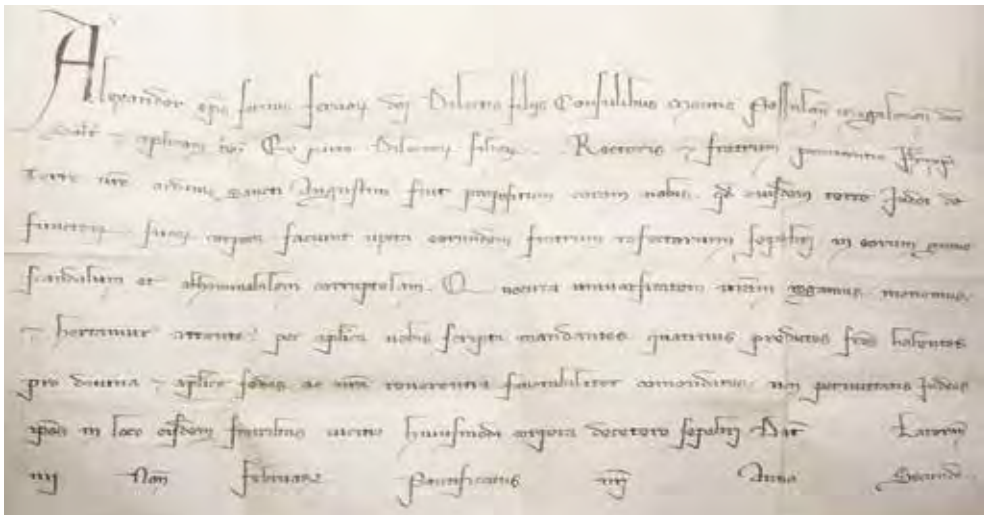 Alexander eps seruus seruoz dei Dilectis filijs Consulibus Montis Pessulan Magalonen dioc
salt ⁊ aplicam ben Ex parte Dilectoz filioz Rectoris ⁊ fratrum penitentie
terre ure ordinis sancti Augustini fuit propositum coram nobis qd eiusdem terre Judei de
functoz suoz corpora faciunt iuxta eorundem fratrum refectorium sepeliri in eorum
scandalum et abhominabilem corruptelam uniuersitatem uram rogamus monemus
⁊ hortamur attente per aplica uobis scripta mandantes quatinus predictos fres habentes
pro diuina ⁊ aplice sedis ac nra reuerentia fauorabiliter comendatos non permittatis Judeos
ipos in loco eisdem fratribus uicino huiusmodi corpora decetero sepeliri Dat Lateran
iiij Non februar Pontificatus nri Anno Secundo